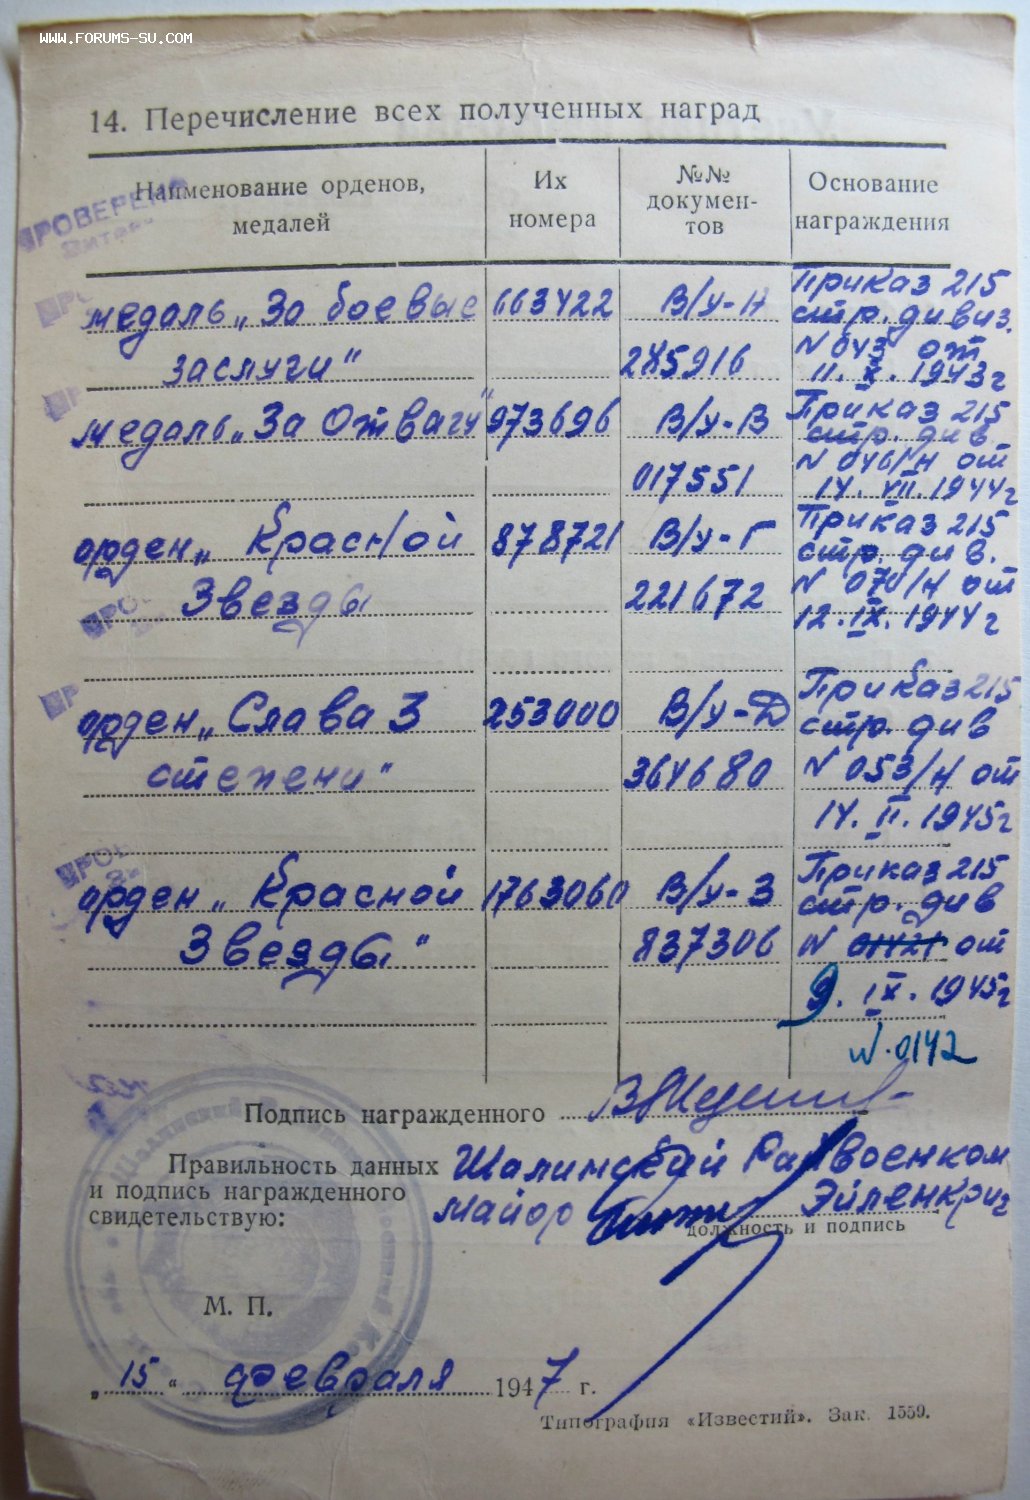 www.forums-su.com
14. Перечисление всех полученных наград
Наименование орденов, медалей
Их номера
№№ докумен-тов
Основание награждения
ПРОВЕРЕНО
медаль „За боевые 663422 В/у-Н Приказ 215
стр. дивиз.
заслуги" 285916 N 043 от
11. X. 1943г
медаль „За Отвагу" 973696 В/у-В Приказ 215
стр. див.
017551 N 046/Н от
14. VII. 1944г
орден „Красной 878721 В/у-Г Приказ 215
стр. див.
Звезды 221672 N 070/Н от
12. IX. 1944г
орден „Слава 3 253000 В/у-Д Приказ 215
стр. див
степени" 364680 N 053/Н от
14. II. 1945г
орден „Красной 1763060 В/у-З Приказ 215
стр. див
Звезды" 837306 N от
9. IX. 1945г
N. 0142
Подпись награжденного
Правильность данных Шалинский Райвоенком
и подпись награжденного
свидетельствую: майор Эйленкриг
должность и подпись
М. П.
„15" февраля 1947 г.
Типография «Известий». Зак. 1559.